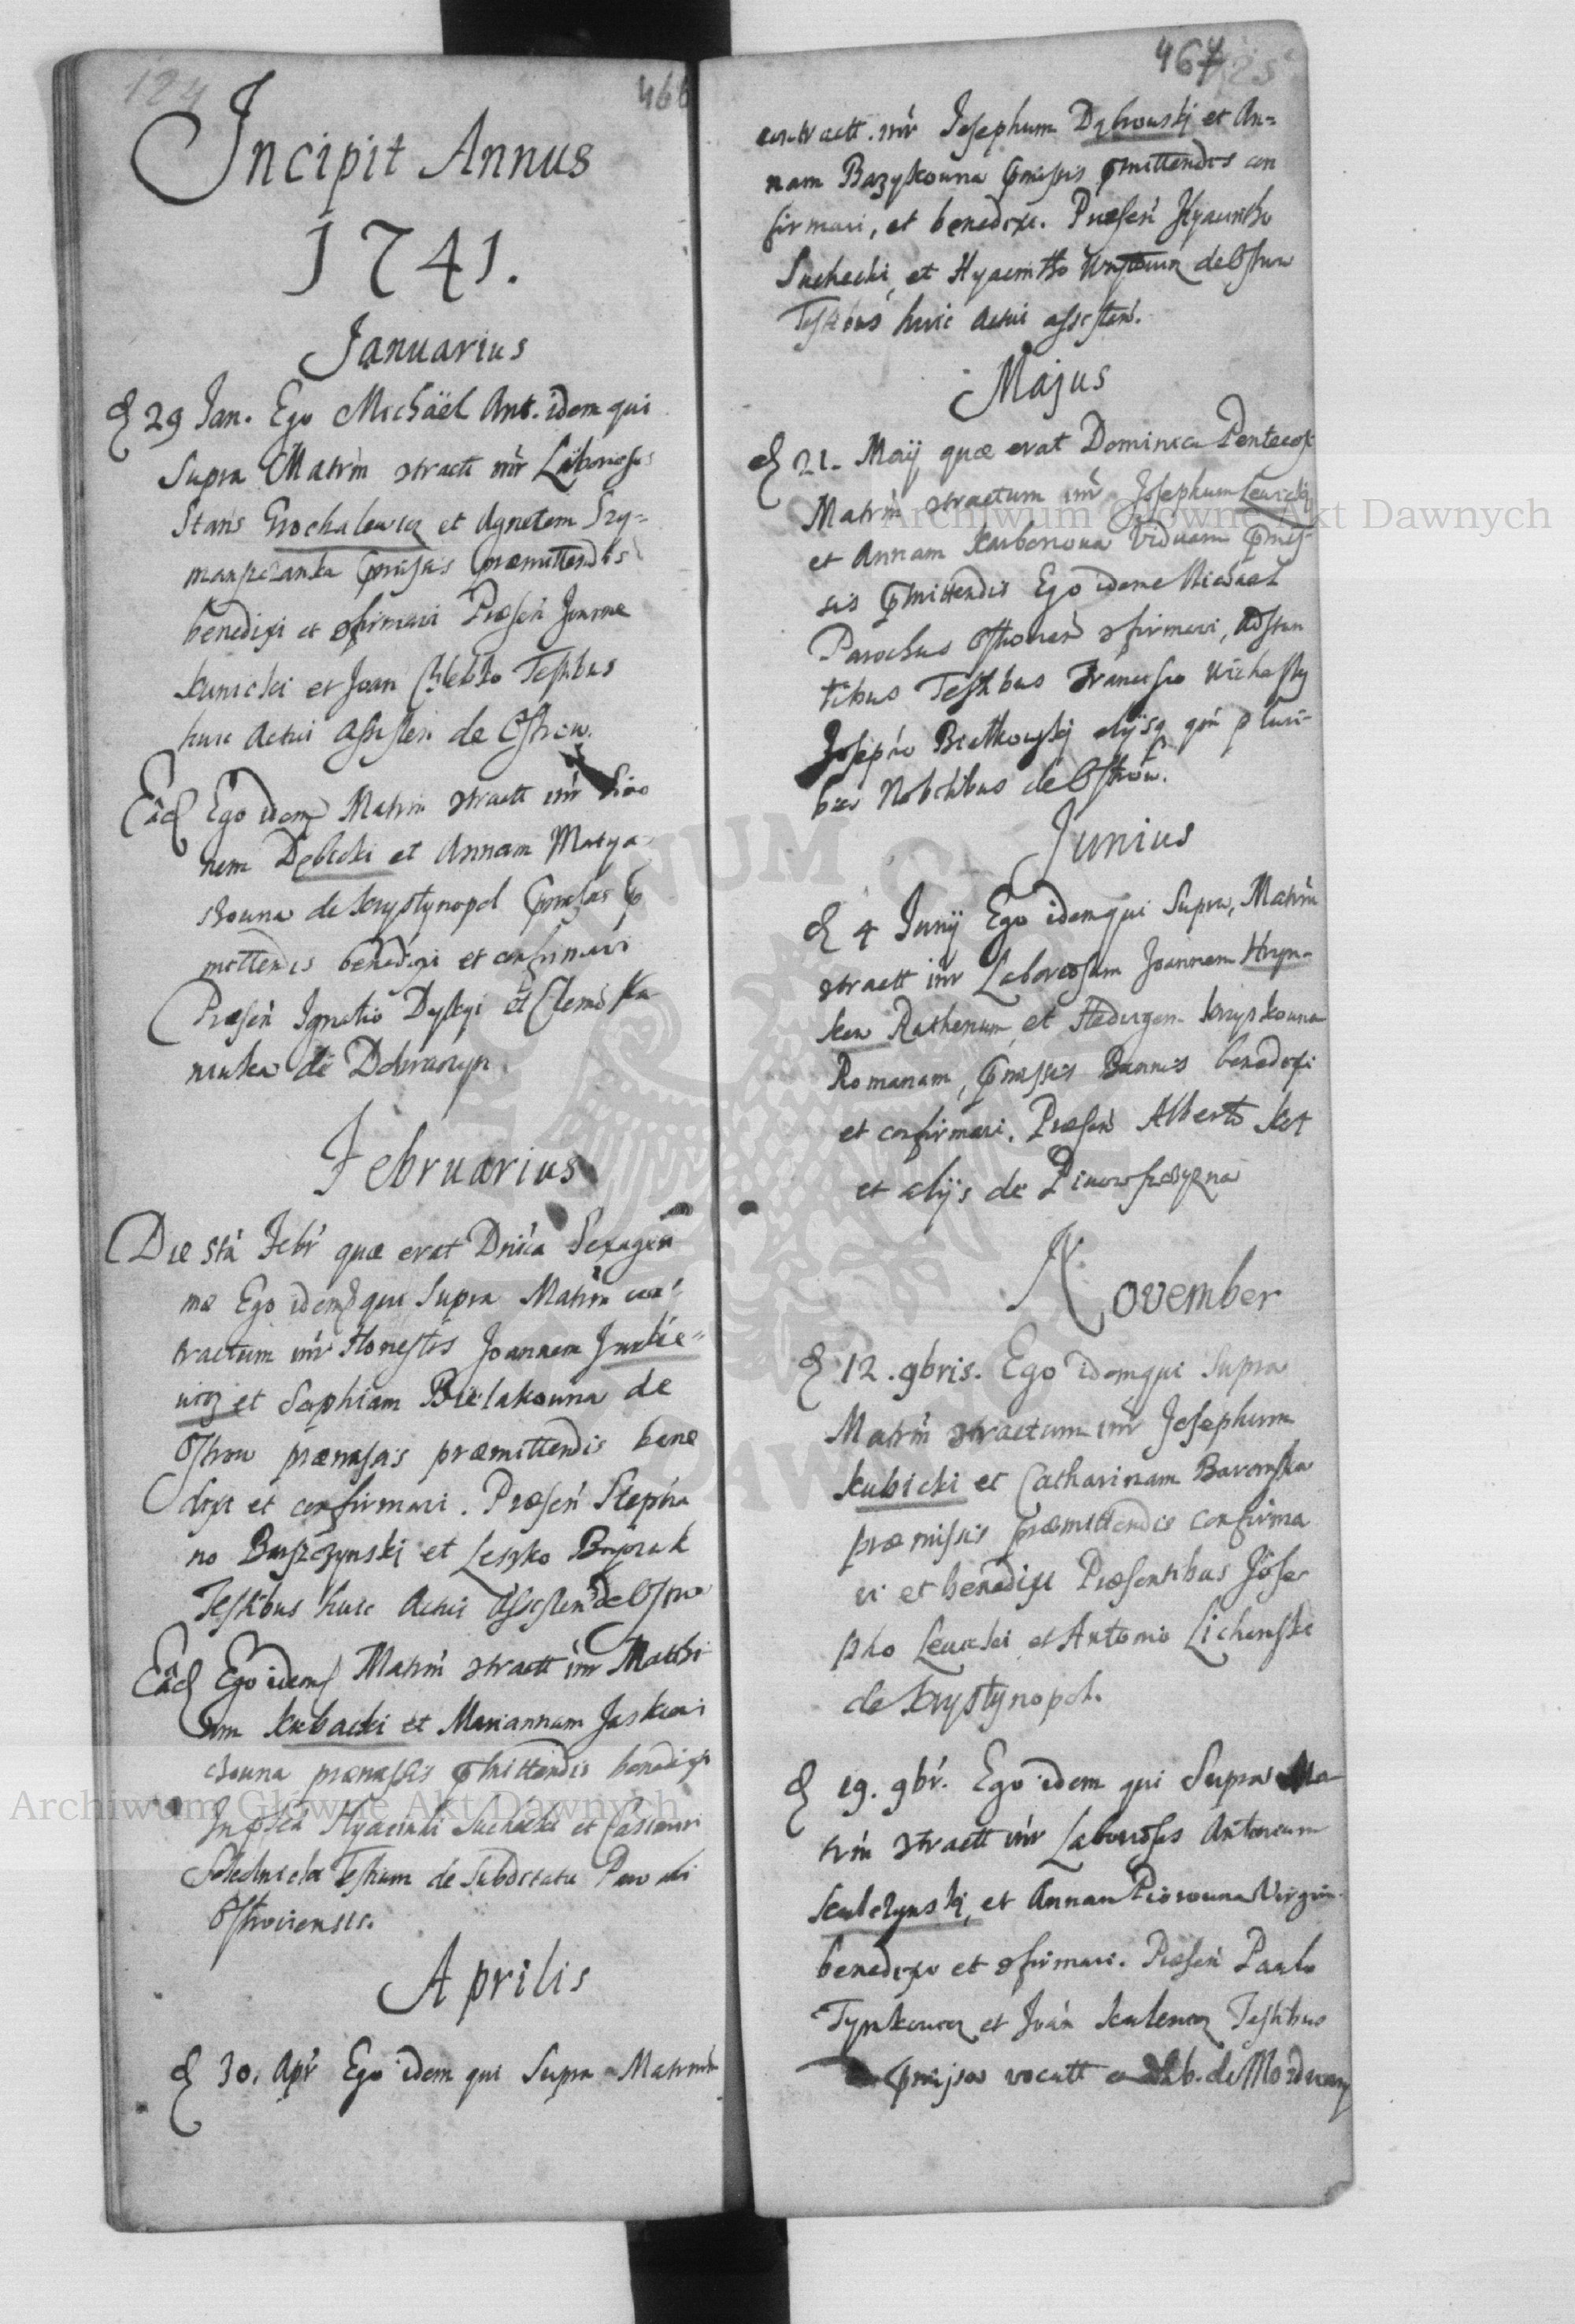 124
466
Incipit Annus
1741.
Januarius
29 Jan. Ego Michäel Ant. idem qui
Supra Matrim stractt intr Laboriosos
Stanis Grochalewicz et Agnetem Szy=
manszczanka præmittendis
benedixi et sfirmavi Præsen Joanne
Kunicki et Joan Testibus
huic Actui assisten de Ostrow.
Ead Ego idem Matrim stractt intr Simo
nem Dębicki et Annam Matya
szowna de Krystynopol
mittendis benedixi et confirmavi
Præsen Ignatio et
de
Februarius
Die 5ta Febr quæ erat Dnica Sexagesi
mæ Ego idem qui Supra Matrim con=
tractum intr Honestos Joannem Jurkie=
wicz et Sophiam Bielakowna de
Ostrow præmissis præmittendis bene
dixi et confirmavi. Præsen Stepha
no Baszczynski et Leszko
Testibus huic Actui assisten de Ostro
Ead Ego idem Matrim stractt intr Matthi
am Kubacki et Mariannam Jaskwi
czowna præmissis pmittendis benedixi
In psen Hyacinthi Suchecki et Casimiri
Testium de Subditatu Parochi
Ostroviensis.
Aprilis
30. Apr Ego idem qui Supra Matrim
467
contractt. intr Josephum Dąbrowskj et An=
nam Bazylkowna pmissis pmittendis con
firmavi, et benedixi. Præsen Hyacintho
Suchecki, et Hyacintho de Ostrow
Testibus huic Actui assisten.
Majus
21. Maij quæ erat Dominica Pentecost
Matrim stractum intr Josephum Lewickj
et Annam Karbonowa Viduam pmis=
sis pmittendis Ego idem Michael
Parochus Ostrovien sfirmavi, Adstan
tibus Testibus Francisco
Josepho Bietkowskj alijsq pluri=
bus Nobilibus de Ostrow.
Junius
4 Junij Ego idem qui Supra, Matrim
stractt intr Laboriosum Joannem Hryn=
kow Ruthenum, et Hedvigem Krzyskowna
Romanam, pmissis Bannis benedixi
et confirmavi. Præsen Alberto Kot
et alijs de
November
12. 9bris. Ego idem qui Supra
Matrim stractum intr Josephum
Kubicki et Catharinam Baromska
præmissis præmittendis confirma
vi et benedixi Præsentibus Jose
pho Lewicki et Antonio Lichenski
de Krystynopol.
19. 9br. Ego idem qui Supra Ma
trim stractt intr Laboriosos Antonium
Kulczynskj, et Annam Piorowna Virgin
benedixi et sfirmavi. Præsen Paulo
Tymkowicz et Iván Kulewicz Testibus
pmissa vocatt
Archiwum Główne Akt Dawnych
Archiwum Główne Akt Dawnych